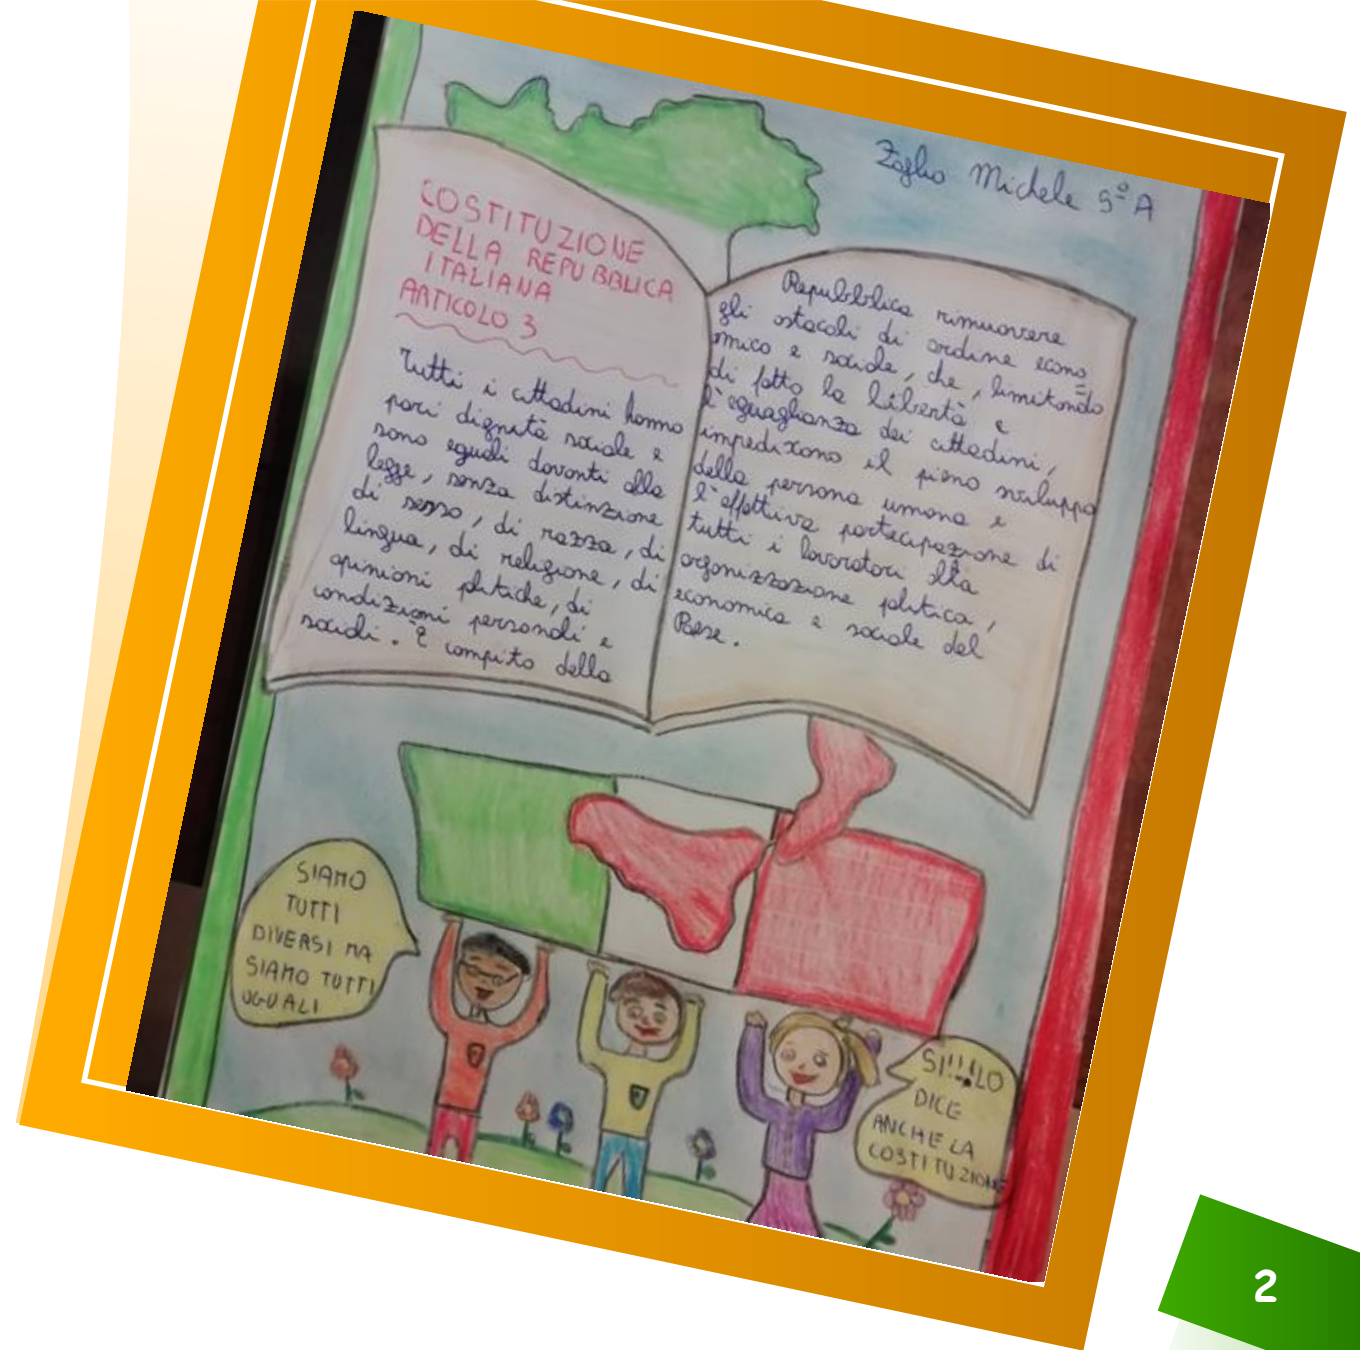 Zoglio Michele 5ª A
COSTITUZIONE
DELLA REPUBBLICA
ITALIANA
ARTICOLO 3
Tutti i cittadini hanno
pari dignità sociale e
sono eguali davanti alla
legge, senza distinzione
di sesso, di razza, di
lingua, di religione, di
opinioni politiche, di
condizioni personali e
sociali. È compito della
Repubblica rimuovere
gli ostacoli di ordine econo
omico e sociale, che, limitando
di fatto la libertà e
l'eguaglianza dei cittadini,
impediscono il pieno sviluppo
della persona umana e
l'effettiva partecipazione di
tutti i lavoratori alla
organizzazione politica,
economica e sociale del
Paese.
SIAMO
TUTTI
DIVERSI MA
SIAMO TUTTI
UGUALI
SI!!! LO
DICE
ANCHE LA
COSTITUZIONE
2